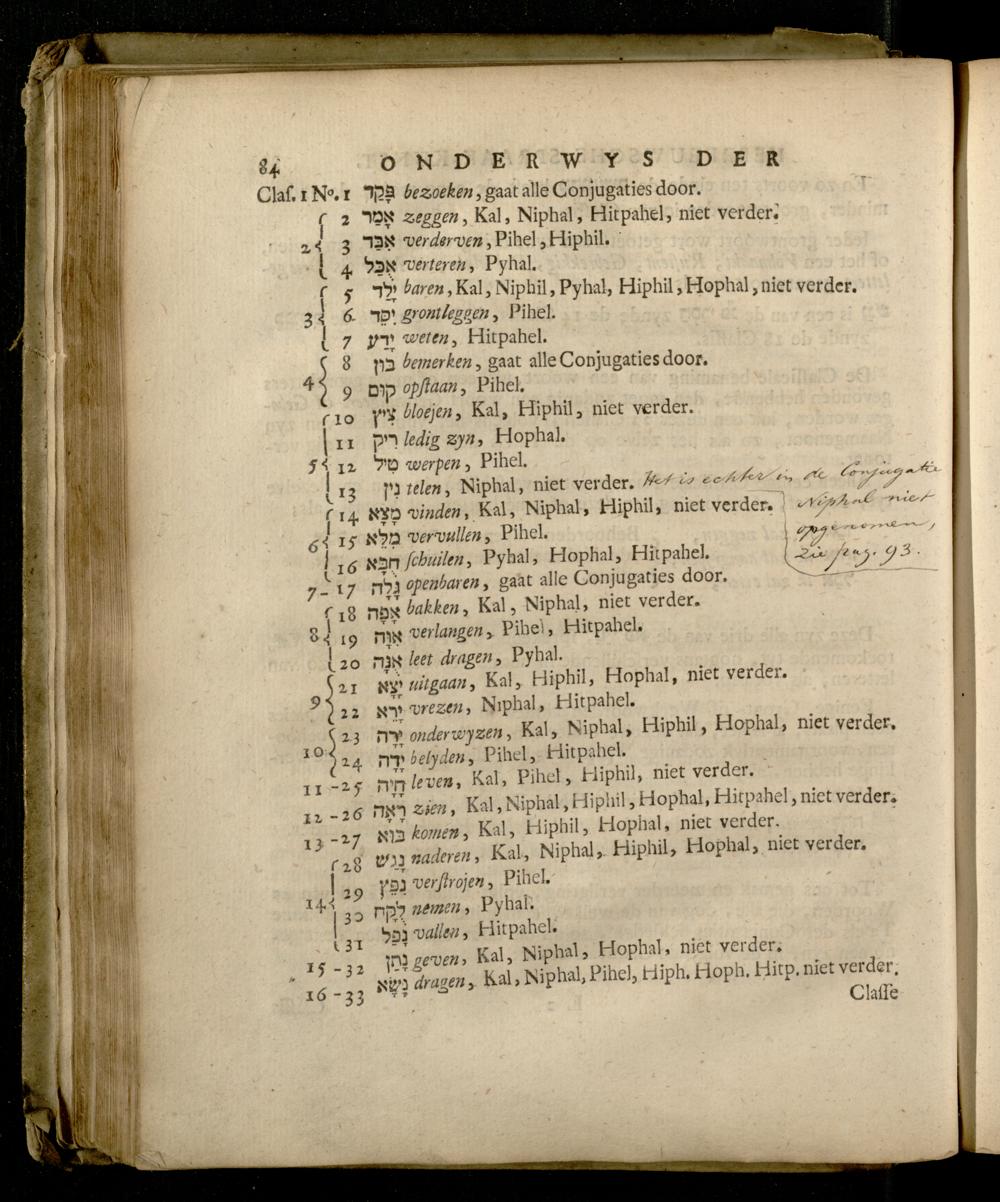 84 ONDERWYS DER
Claſ. 1 No. 1 פָּקַד bezoeken, gaat alle Conjugaties door.
2 אָמַר zeggen, Kal, Niphal, Hitpahel, niet verder.
2 { 3 אִבַּד verderven, Pihel, Hiphil.
4 אֻכַּל verteren, Pyhal.
5 יָלַד baren, Kal, Niphil, Pyhal, Hiphil, Hophal, niet verder.
3 { 6 יִסַּד grontleggen, Pihel.
7 יָדַע weten, Hitpahel.
4 { 8 בּוּן bemerken, gaat alle Conjugaties door.
9 קוּם opſtaan, Pihel.
10 צִיץ bloejen, Kal, Hiphil, niet verder.
11 רִיק ledig zyn, Hophal.
5 { 12 טִיל werpen, Pihel.
13 נִין telen, Niphal, niet verder. Het is echter in de Conjugatie
Niphal niet
opgenomen,
Zie pag. 93.
14 מָצָא vinden, Kal, Niphal, Hiphil, niet verder.
6 { 15 מִלֵּא vervullen, Pihel.
16 חֻבָּא ſchuilen, Pyhal, Hophal, Hitpahel.
7 - 17 גָּלָה openbaren, gaat alle Conjugaties door.
18 אָפָה bakken, Kal, Niphal, niet verder.
8 { 19 אִוָּה verlangen, Pihel, Hitpahel.
20 אֻנָּה leet dragen, Pyhal.
9 { 21 יָצָא uitgaan, Kal, Hiphil, Hophal, niet verder.
22 יָרֵא vrezen, Niphal, Hitpahel.
10 { 23 יָרָה onderwyzen, Kal, Niphal, Hiphil, Hophal, niet verder.
24 יָדָה belyden, Pihel, Hitpahel.
11 - 25 חָיָה leven, Kal, Pihel, Hiphil, niet verder.
12 - 26 רָאָה zien, Kal, Niphal, Hiphil, Hophal, Hitpahel, niet verder.
13 - 27 בּוֹא komen, Kal, Hiphil, Hophal, niet verder.
28 נָגַשׁ naderen, Kal, Niphal, Hiphil, Hophal, niet verder.
14 { 29 נִפֵּץ verſtrojen, Pihel.
30 לֻקַּח nemen, Pyhal.
31 נָפַל vallen, Hitpahel.
15 - 32 נָתַן geven, Kal, Niphal, Hophal, niet verder.
16 - 33 נָשָׂא dragen, Kal, Niphal, Pihel, Hiph. Hoph. Hitp. niet verder.
Claſſe